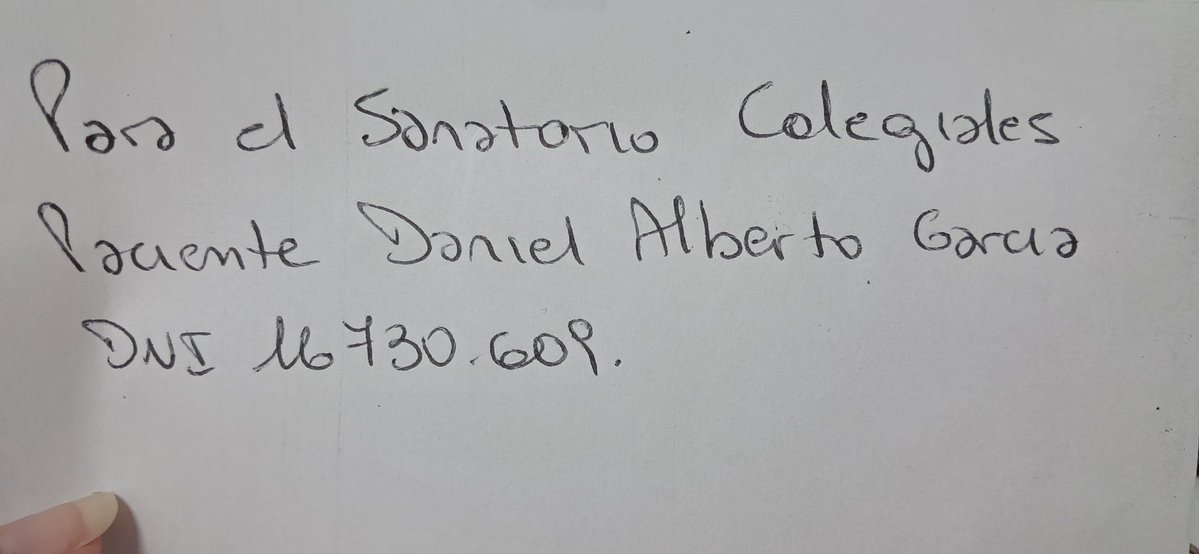 Para el Sanatorio Colegiales
Paciente Daniel Alberto Garcia
DNI 16730.609.